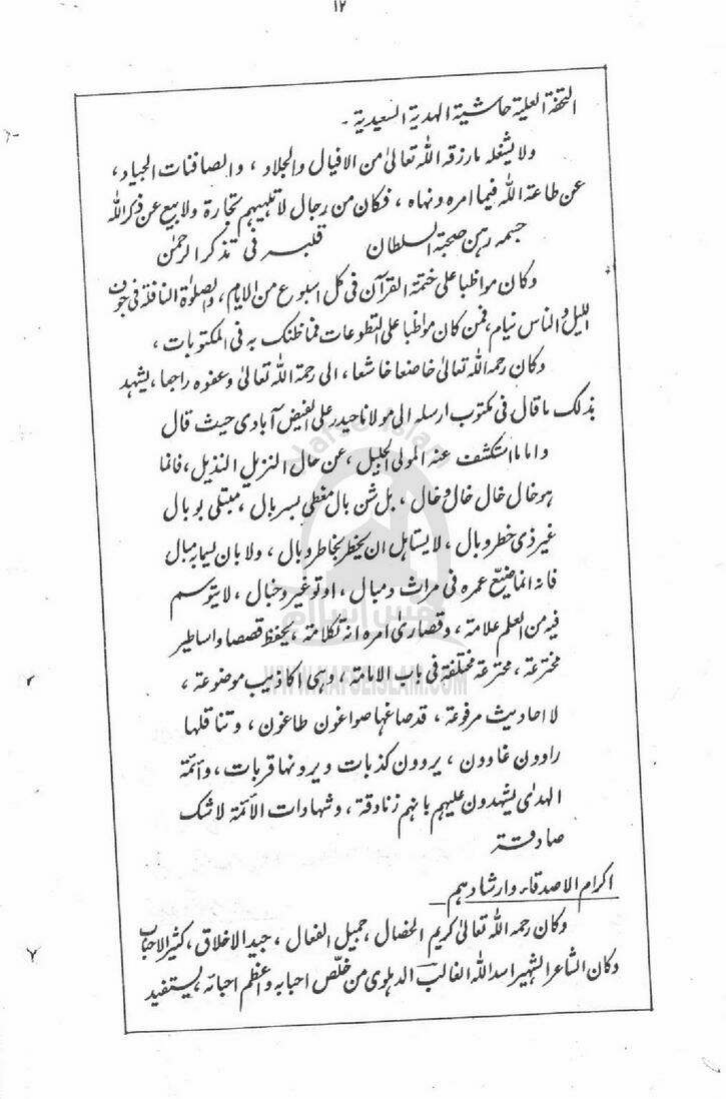 ١٢
التحفة العلية حاشية الهدية السعيدية ۔
ولا يشغله ما رزقه الله تعالىٰ من الافيال والجلاد ، والصافنات الجياد ،
عن طاعة الله فيما امره ونهاه ، فكان من رجال لا تلهيهم تجارة ولا بيع عن ذكر الله
جسمه رهن صحبة السلطان قلبه فى تذكر الرحمٰن
وكان مواظبا على ختمة القرآن فى كل اسبوع من الايام ، والصلوٰة النافلة فى جوف
الليل والناس نيام ، فمن كان مواظبا على التطوعات فما ظنك به فى المكتوبات ،
وكان رحمه الله تعالىٰ خاضعا خاشعا ، الى رحمة الله تعالىٰ وعفوه راجعا ، يشهد
بذلك ما قال فى مكتوب ارسله الى مولانا حيدر على الفيض آبادى حيث قال
واما ما استكشف عنه المولى الجليل ، عن حال النزيل النذيل ، فانما
هو خال خال خال وخال ، بل شن بال مغطى بسربال ، مبتلى بوبال
غير ذى خطر وبال ، لا يستاهل ان يخطر بخاطر وبال ، ولا بان يسما به مبال
فانه انما ضيع عمره فى مراث ومبال ، او توغير وخبال ، لا يتوسم
فيه من العلم علامة ، وقصارىٰ امره انه تكلامة ، يحفظ قصصا واساطير
مخترعة ، مخترعة مختلقة فى باب الامامة ، وهى اكاذيب موضوعة ،
لا احاديث مرفوعة ، قد صاغها صواغون طاغون ، وتناقلها
راوون غاوون ، يروون كذبات ويرونها قربات ، وأئمة
الهدىٰ يشهدون عليهم بانهم زنادقة ، وشهادات الأئمة لا شك
صادقة
اكرام الاصدقاء وارشادهم
وكان رحمه الله تعالىٰ كريم الخصال ، جميل الفعال ، جيد الاخلاق ، كثير الاحباب
وكان الشاعر الشهير اسد الله الغالب الدهلوى من خلّص احبابه واعظم احبائه ، يستفيد
WWW.NAFSEISLAM.COM